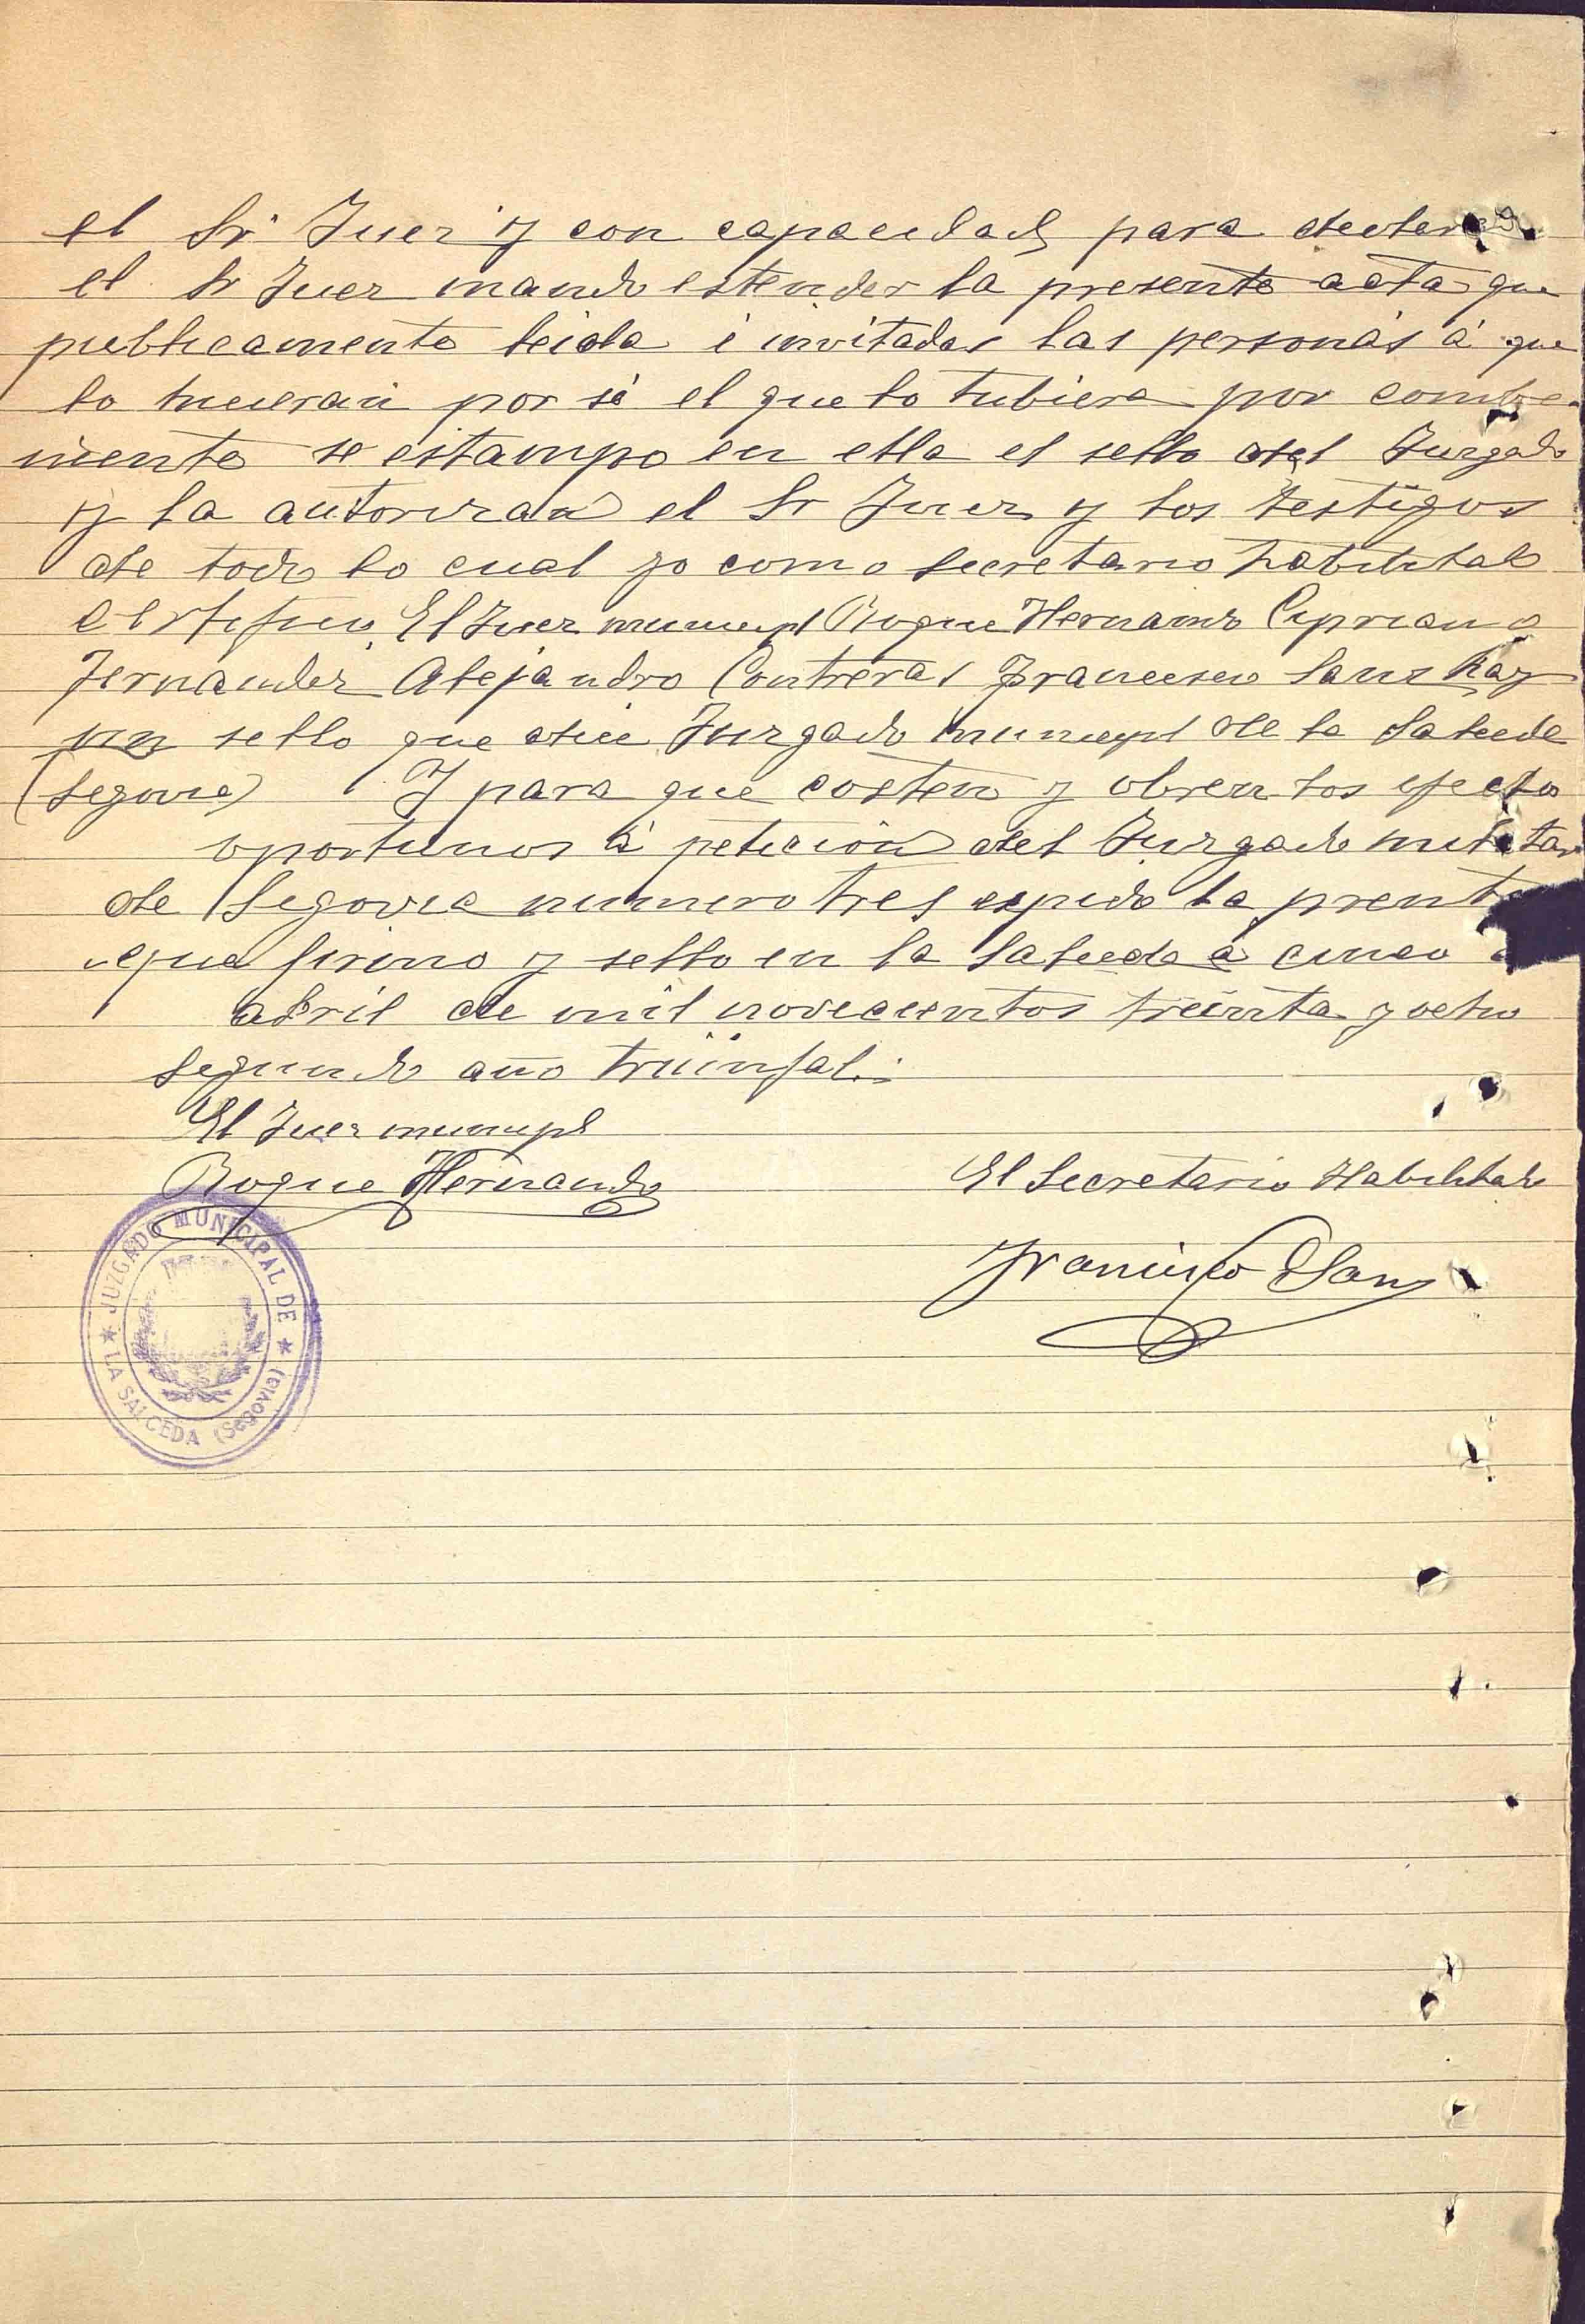 el Sr Juez y con capacidad para
el Sr Juez mando estender la presente acta que
publicamente leida é invitadas las personas á que
lo hicieran por sí el que lo tubiera por combe-
niente se estampo en ella el sello del Juzgado
y la autorizan el Sr Juez y los testigos
de todo lo cual yo como secretario habilitado
certifico. El Juez municipl Roque Hernando Cipriano
Fernandez Alejandro Contreras Francisco Sanz Hay
un sello que dice Juzgado municipl de la Salceda
(Segovia) Y para que costen y obren los efectos
oportunos á petición del Juzgado militar
de Segovia numero tres expido la prente
que firmo y sello en la Salceda á cinco
abril de mil novecientos treinta y ocho
segundo año triunfal.
El Juez municipl
Roque Hernando
El Secretario Habilitado
Francisco Sanz
JUZGADO MUNICIPAL DE
LA SALCEDA (Segovia)